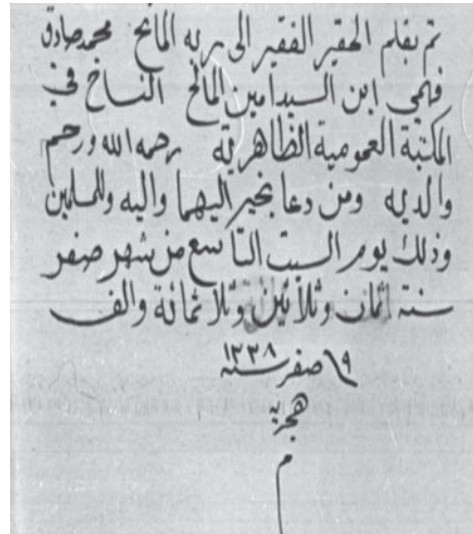 تم بقلم الحقير الفقير الى ربه المانح محمد صادق
فهمي ابن السيد امين المالح الناسخ في
المكتبة العمومية الظاهرية رحمه الله ورحم
والديه ومن دعا بخير اليهما واليه وللمسلمين
وذلك يوم السبت التاسع من شهر صفر
سنة ثمان وثلاثين وثلاثمائة والف
٩ صفر سنة ١٣٣٨
هجرية
م